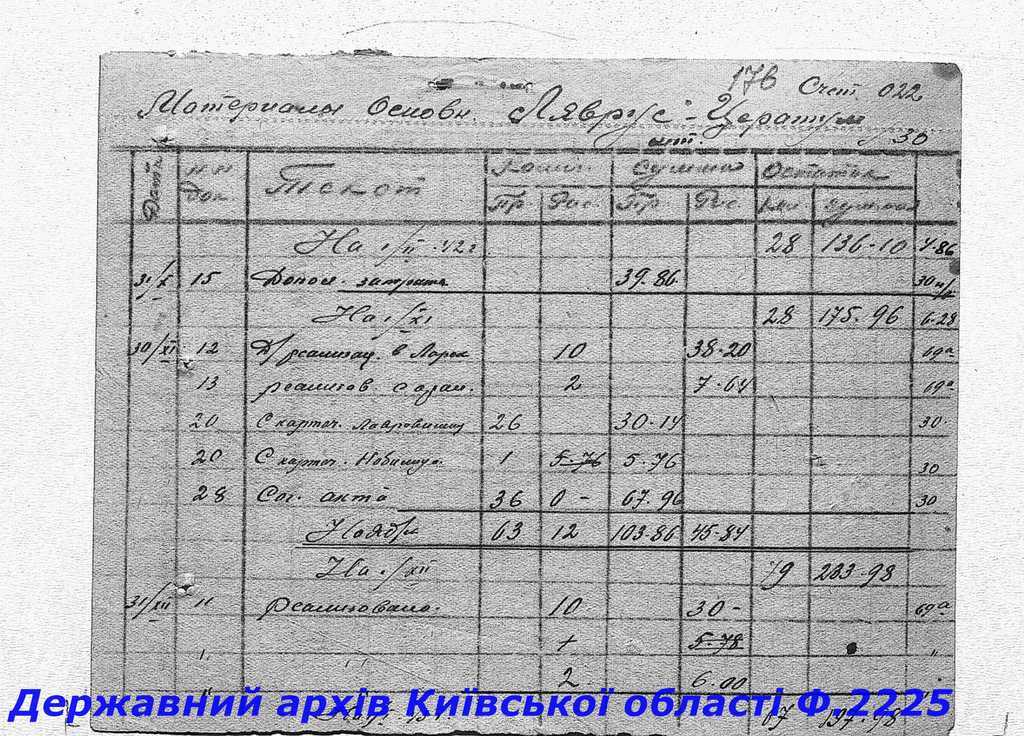 176 Счет 022
Материалы Основн. Ляврус-Цератум
шт. 30
Дата НН док Текст Колич. Сумма Остаток
Пр Рас. Пр Рас. Кол Сумма
На 1/XI 42г 28 136-10 4-86
31/X 15 Допол. затраты 39.86 30
На 1/XI 28 175.96 6-28
30/XI 12 Д/реализац. в Ларек 10 38-20 69а
13 реализов. 2 7-64 69а
20 С карточ. 26 30-14 30
20 С карточ. 1 5-76 5-76 30
28 Сог. акта 36 0- 67.96 30
Ноябрь 63 12 103-86 45-84
На 1/XII 79 233-98
31/XII 11 реализовано. 10 30- 69а
5-78
2 6.00
67 197-98
Державний архів Київської області Ф.2225